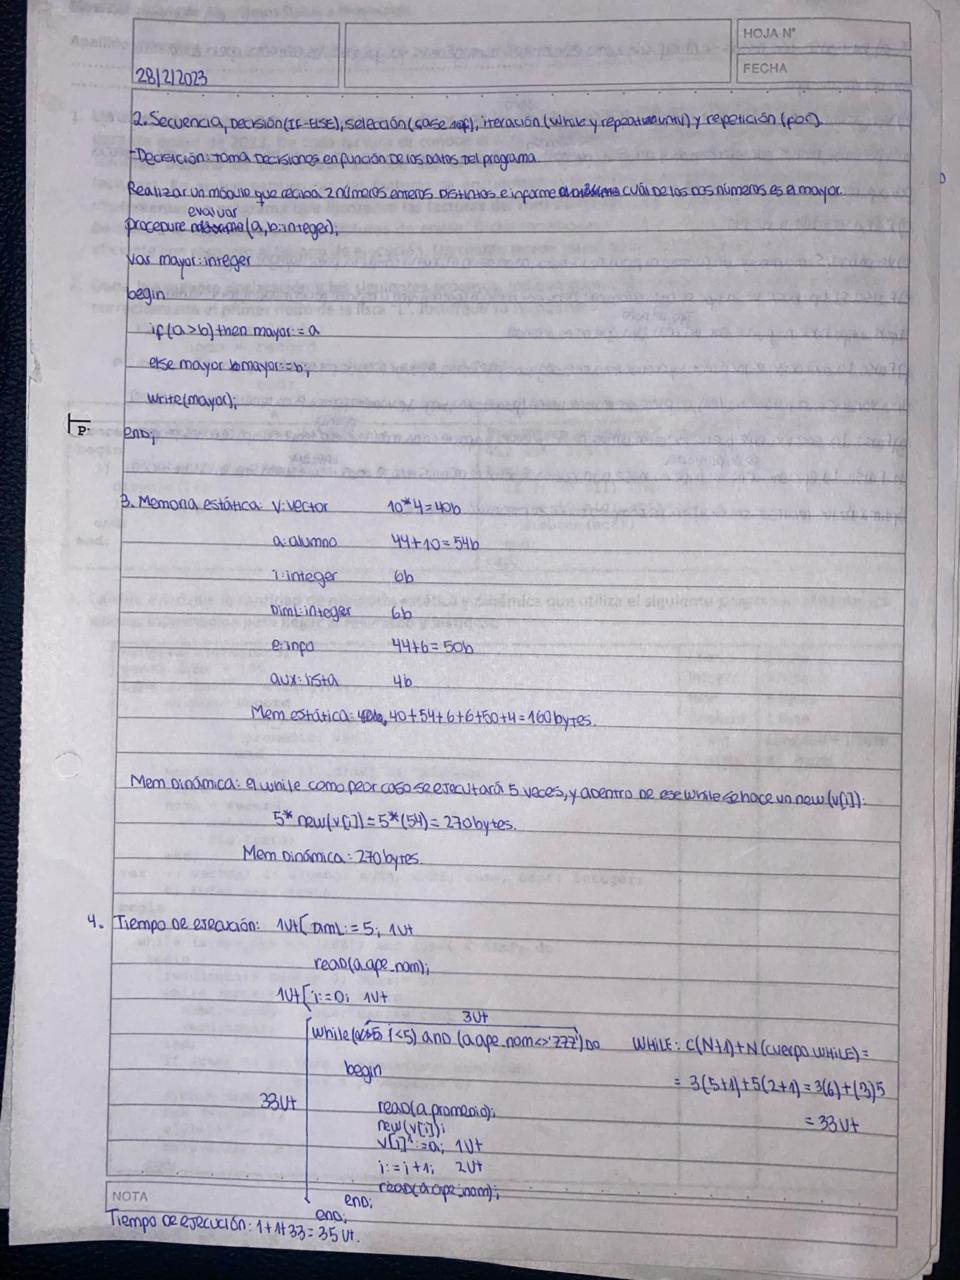 HOJA N°
28/2/2023
FECHA
2. Secuencia, Decisión (IF-ElSE), selección (case of), iteración (while y repeat until) y repetición (for).
-Decisión: toma decisiones en función de los datos del programa.
Realizar un módulo que reciba 2 números enteros distintos e informe cuál de los dos números es el mayor.
evaluar
procedure (a,b:integer);
var mayor:integer
begin
if (a>b) then mayor:=a
else mayor:=b;
write(mayor);
P.
end;
3. Memoria estática: v:vector 10*4=40b
a:alumno 44+10=54b
i:integer 6b
DimL:integer 6b
e:info 44+6=50b
aux:lista 4b
Mem estática: 40+54+6+6+50+4=160bytes.
Mem Dinámica: el while como peor caso se ejecutará 5 veces, y adentro de ese while se hace un new(v[i]):
5*new(v[i])=5*(54)=270bytes.
Mem Dinámica: 270bytes.
4. Tiempo de ejecución: 1Ut[ DimL:=5; 1Ut
read(a.ape_nom);
1Ut[ i:=0; 1Ut
3Ut
while( i<5) and (a.ape_nom<>'ZZZ') do WHILE: C(N+1)+N(cuerpo WHILE)=
begin = 3(5+1)+5(2+1)=3(6)+(3)5
33Ut read(a.promedio); = 33Ut
new(v[i]);
v[i]^:=a; 1Ut
i:=i+1; 2Ut
read(a.ape_nom);
end;
NOTA
end;
Tiempo de ejecución: 1+1+33=35Ut.